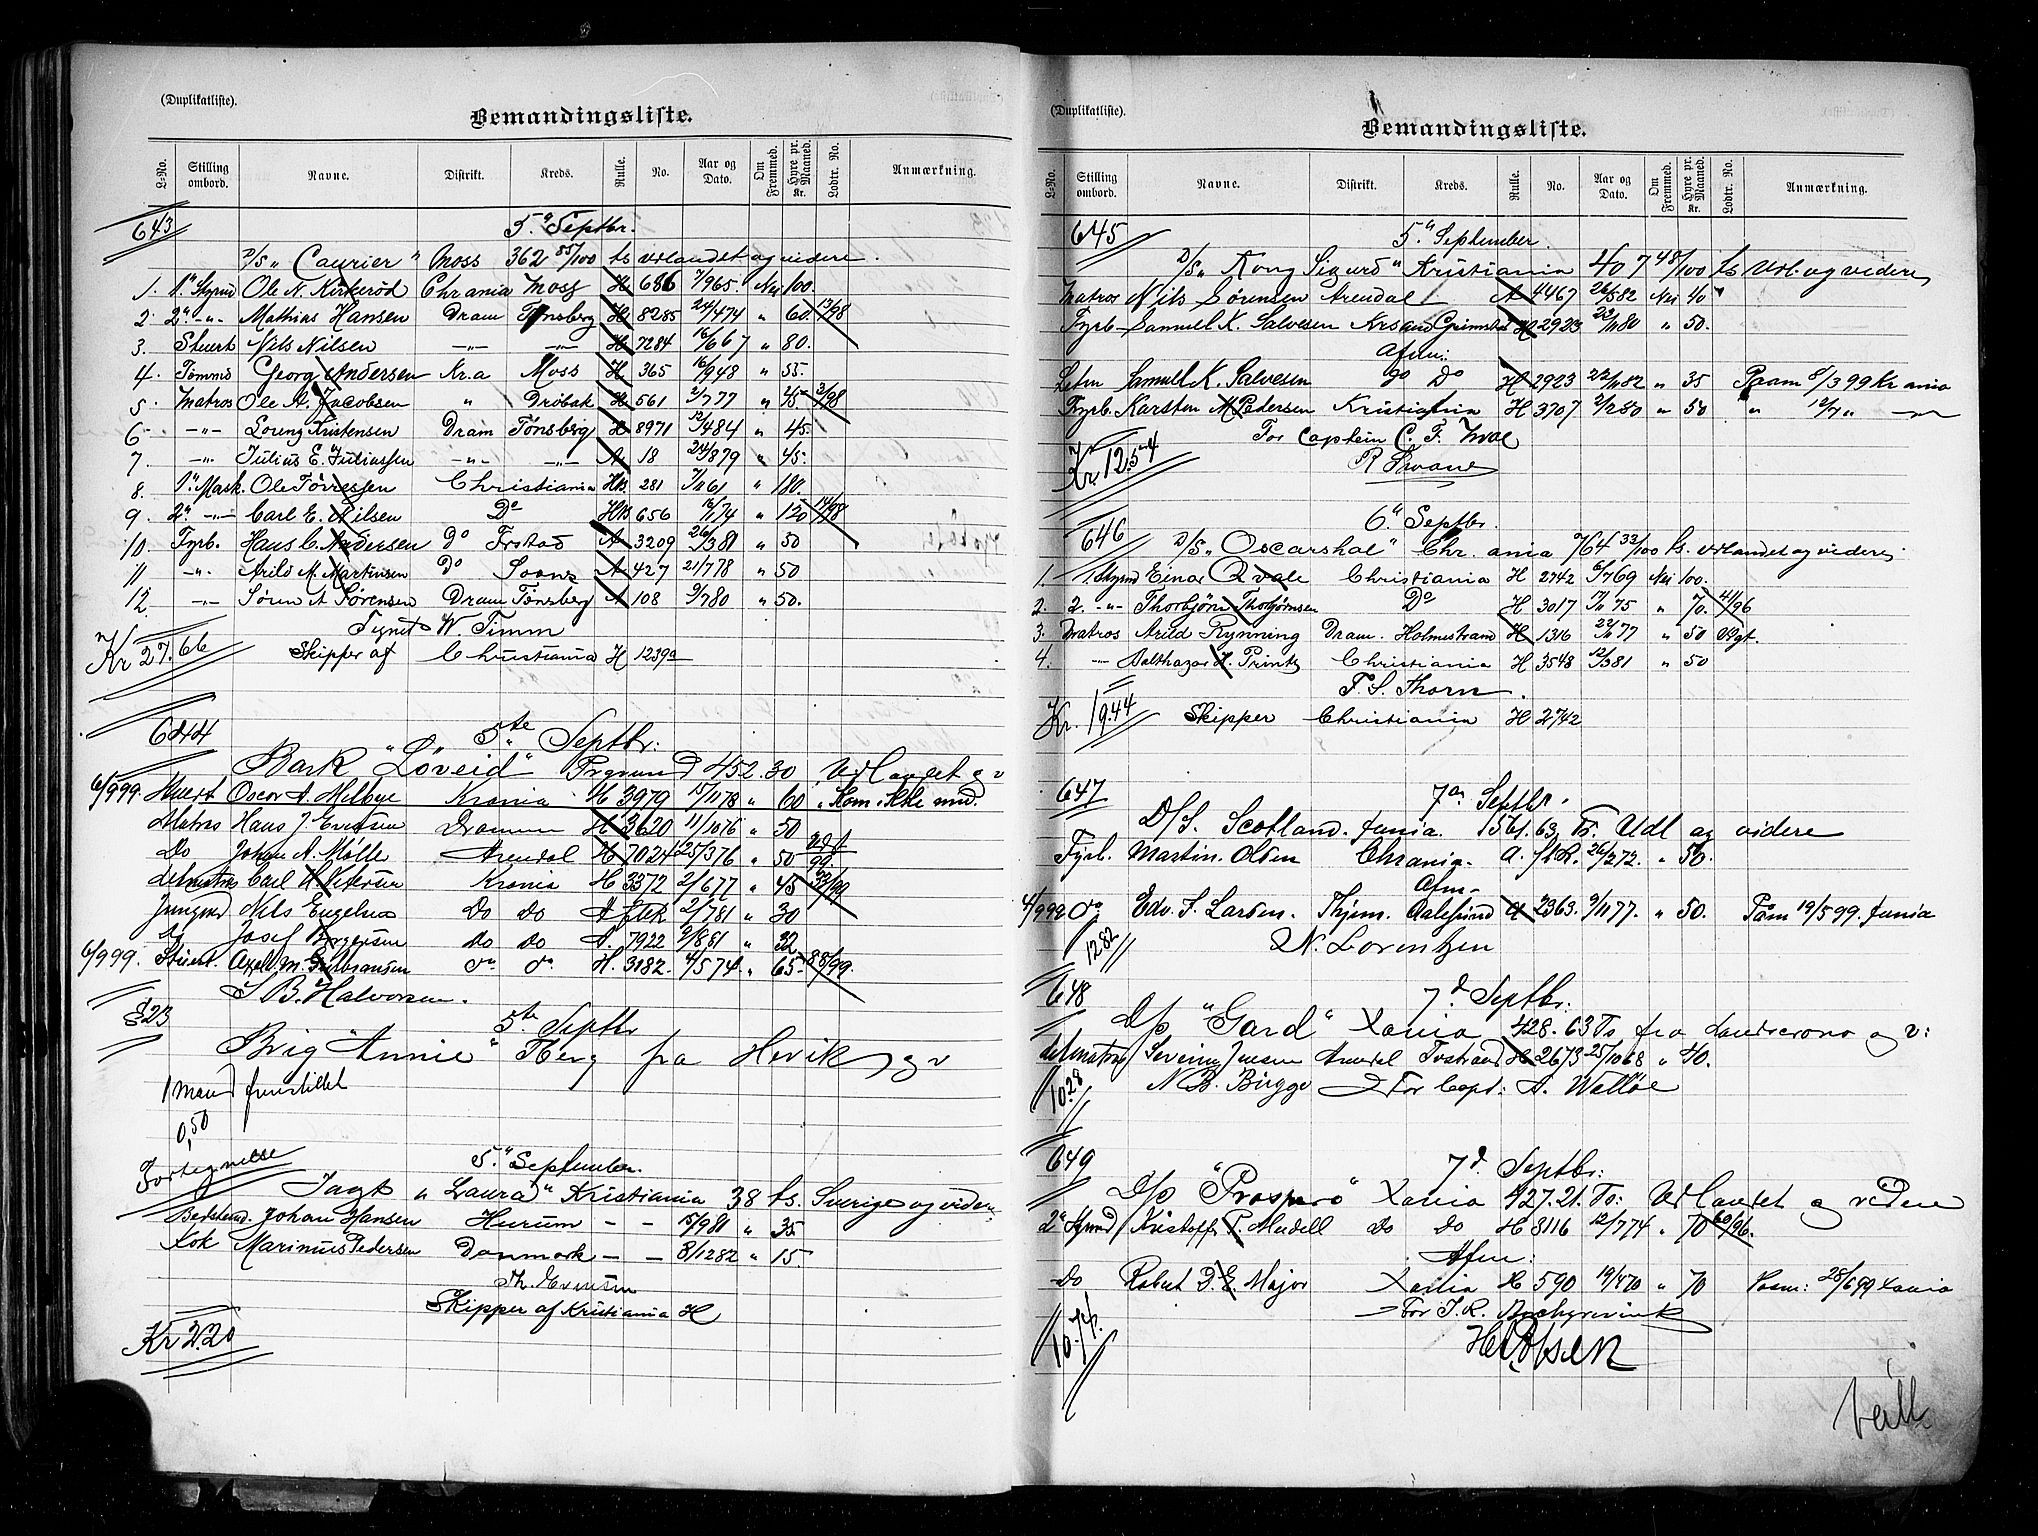 (Duplikatliste).
Bemandingsliste.
L-No. Stilling ombord. Navne. Distrikt. Kreds. Rulle. No. Aar og Dato. Om Fremmed. Hyre pr. Maaned. Kr. Lodtr. No. Anmærkning.
643 5" Septbr.
D/S „ Caurier " Moss 362 85/100 ts Udlandet og videre.
1. 1" Stymd Ole N. Kirkerød Chrania Moss H 686 7/965. Nei 100.
2. 2" -"- Mathias Hansen Dram Tønsberg H 8285 24/474 " 60. 13/98
3. Stuert Nils Nilsen -"- -"- H 7284 16/667 " 80.
4. Tømmd Georg Andersen Kr.a Moss H 365 16/948 " 55.
5. Matros Ole A. Jacobsen " Drøbak H 561 2/777 " 45. 3/98
6. -"- Lorenz Kristensen Dram Tønsberg H 8971 13/484 " 45.
7. -"- Julius E. Juliussen -"- -"- A 18 24/879 " 45.
8. 1" Mask. Ole Torressen Christiania HB. 281 7/1161 " 180.
9. 2" -"- Carl E. Nilsen Do HB 656 16/174 " 120 14/98
10. Fyrb. Hans C. Andersen Do Frstad A 3209 26/381 " 50
11. -"- Arild M. Martinsen Do Soon A 427 21/778 " 50
12. -"- Søren A Sørensen Dram Tønsberg A 108 9/780 " 50.
Kr 27.66 Signet W. Timm
Skipper af Christiania H 1239a
644 5te Septbr:
Bark "Løveid" Prgrund 452.30 Udlandet o v
6/999. Stuert Oscar A. Melbye Krania H 3979 15/1178 " 60 " Kom ikke med.
Matros Hans J. Evensen Drammen H 3620 11/1076 " 50
Do Johan A. Mølle Arendal H 7024 25/376 " 50 Udsf 99
Letmatros Carl A. Petersen Krania H 3372 2/677 " 45 32/99
Jungmd Nils Engelsen Do Do A 2/781 " 30
Do Josef Børgersen Do Do A. 7922 9/881 " 32
6/999. Stuert. Axel M. Gulbransen do do H. 3182. 4/574 " 65. 88/99.
S B. Halvorsen.
823 5te Septbr
Brig "Annie" Tberg fra Hevik o v
1 Mand fremstillet
0,50
Fortegnelse 5." September.
Jagt „ Laura " Kristiania 38 ts. Sverige og videre
Bedstemd. Johan Hansen Hurum — — 15/981 " 35
Kok Marinus Pedersen Danmark — — 8/1282 " 15.
Th. Evensen
Skipper af Kristiania H
Kr 2.20
(Duplikatliste).
Bemandingsliste.
L-No. Stilling ombord. Navne. Distrikt. Kreds. Rulle. No. Aar og Dato. Om Fremmed. Hyre pr. Maaned. Kr. Lodtr. No. Anmærkning.
645 5" September.
D/S „ Kong Sigurd " Kristiania 407 48/100 ts Udl. og videre
Matros Nils Sørensen Arendal A 4467 26/582 Nei 40
Fyrb. Samuel K. Salvesen Krsand Grimstad H 2923 22/1180 " 50.
Afm:
Letm Samuel K. Salvesen Do Do H 2923 22/1182 " 35 Paam 8/3 99 Kr ania
Fyrb. Karsten M Pedersen Kristiania H 3707 2/250 " 50 " 12/7 " -"-
For Captein C. F.
Kr. 12.54
6" Septbr.
646 D/S „ Oscarshal " Chr. ania 764 33/100 ts. Udlandet og videre.
1. 1 Stymd Einar Qvale Christiania H 2742 6/769 Nei 100.
2. 2. -"- Thorbjørn Thorbjørnsen Do H 3017 7/1175 " 70. 41/96
3. Matros Arild Rynning Dram. Holmestrand H 1316 22/1077 " 50 Udgt.
4. -"- Balthazar H. Printz Christiania H 3548 12/381 " 50
F. S. Thorn.
Kr. 19.44 Skipper Christiania H 2742
647 7de Septbr.
D/S. Scotland. Xania. 1561.63 Ts. Udl og videre
Fyrb. Martin. Olsen Chrania. A. 26/272. " 50.
Afm.
4/999 do Edv. S. Larsen. Thjem. Aalesund A 2363. 9/1177. " 50. Paam 19/5 99. Xania
1282 N. Lorentzen
648 7d Septbr:
D/S "Gard" Xania 428.63 Ts fra Landscrona o v:
Letmatros Severin Jensen Arendal Tvstrand H 2673 25/1068 " 40.
10.28 N. B. Birgge For Capt: A. Walløe
649 7d Septbr:
D/S "Prospero" Xania 427.21. Ts: Udlandet og videre
2" Stymd Kristoffer P. Mudell Do Do H 8116 12/774 " 70 60/96.
Afm:
Do Robert D. E. Major Xania H 590 19/470 " 70 Paam: 28/6 99 Xania
For J. R.
10.74.